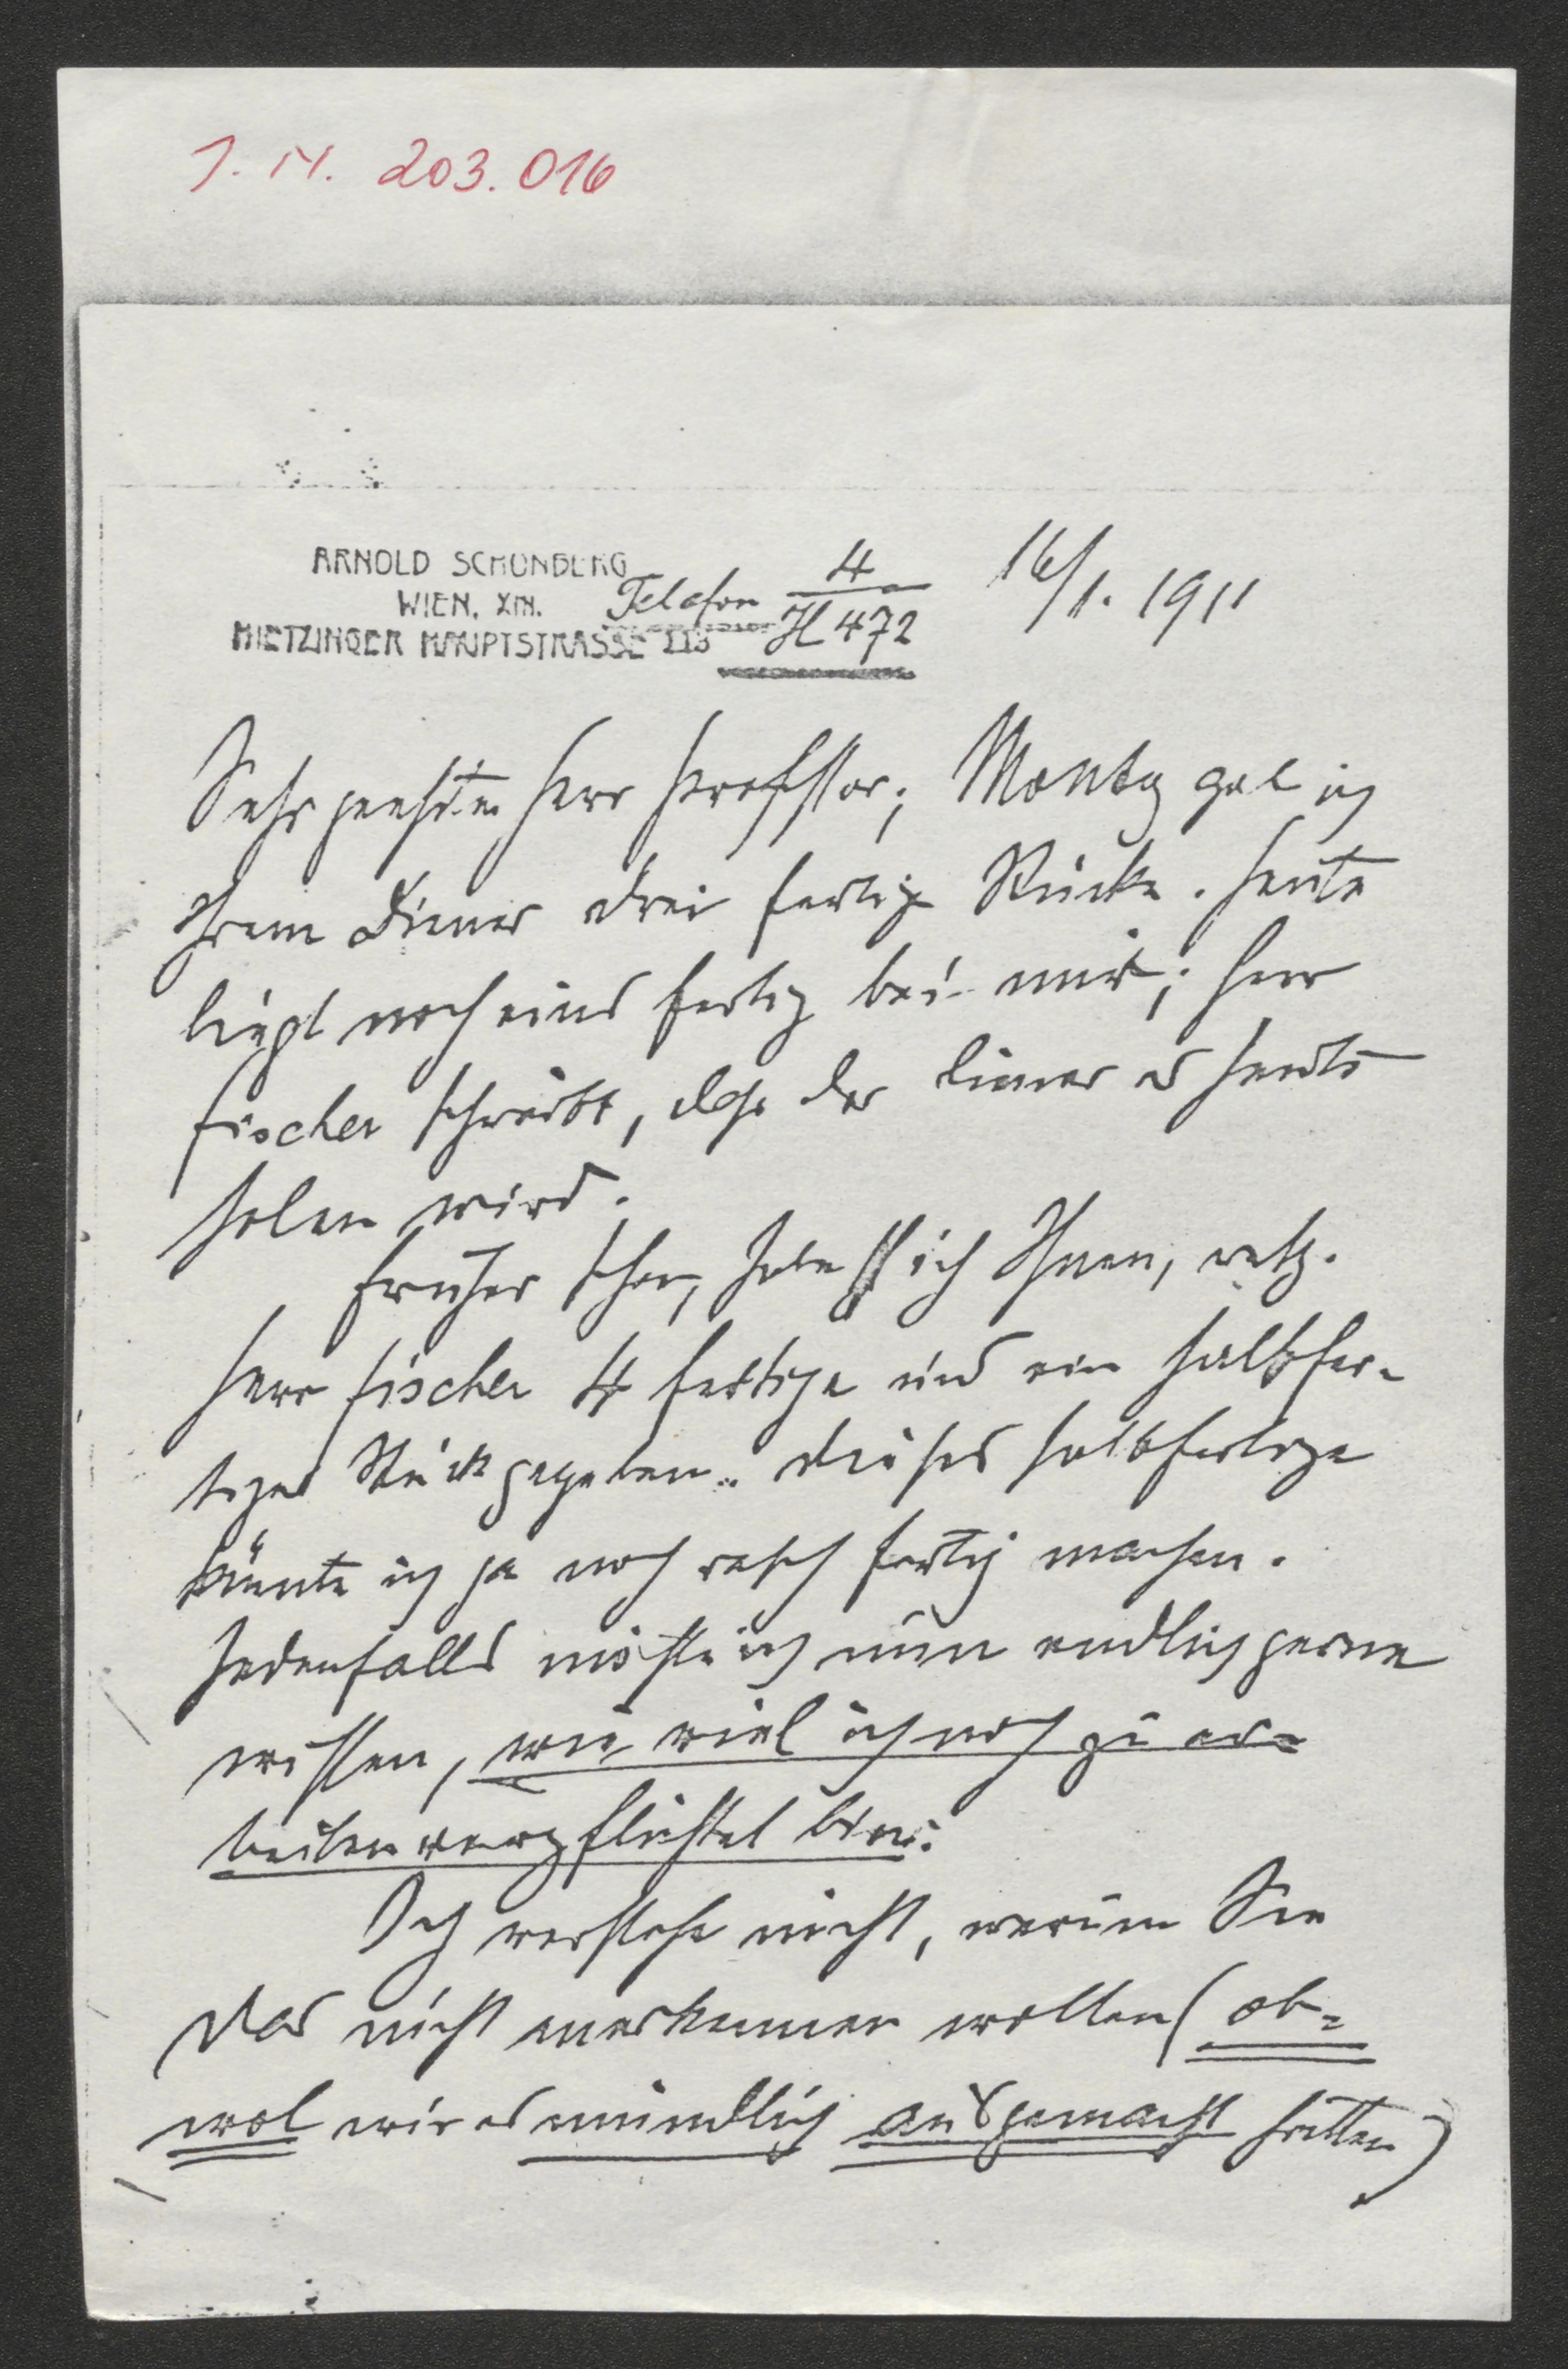 I. N. 203.016
ARNOLD SCHÖNBERG
WIEN, XIII.
HIETZINGER HAUPTSTRASSE 113
Telefon 4
H 472
16/1. 1911
Sehr geehrter Herr Professor; Montag gab ich
Ihrem Diener drei fertige Stücke. Heute
liegt noch eines fertig bei mir; Herr
Fischer schreibt, daß der Diener es heute
holen wird.
Früher schon, habe ich Ihnen, resp.
Herr Fischer 4 fertige und ein halbfer-
tiges Stück gegeben. Dieses halbfertige
könnte ich ja noch rasch fertig machen.
Jedenfalls möchte ich nun endlich gerne
wissen, wie viel ich noch zu ar-
beiten verpflichtet bin.
Ich verstehe nicht, warum Sie
das nicht anerkennen wollen (ob-
wol wir es mündlich ausgemacht hatten)